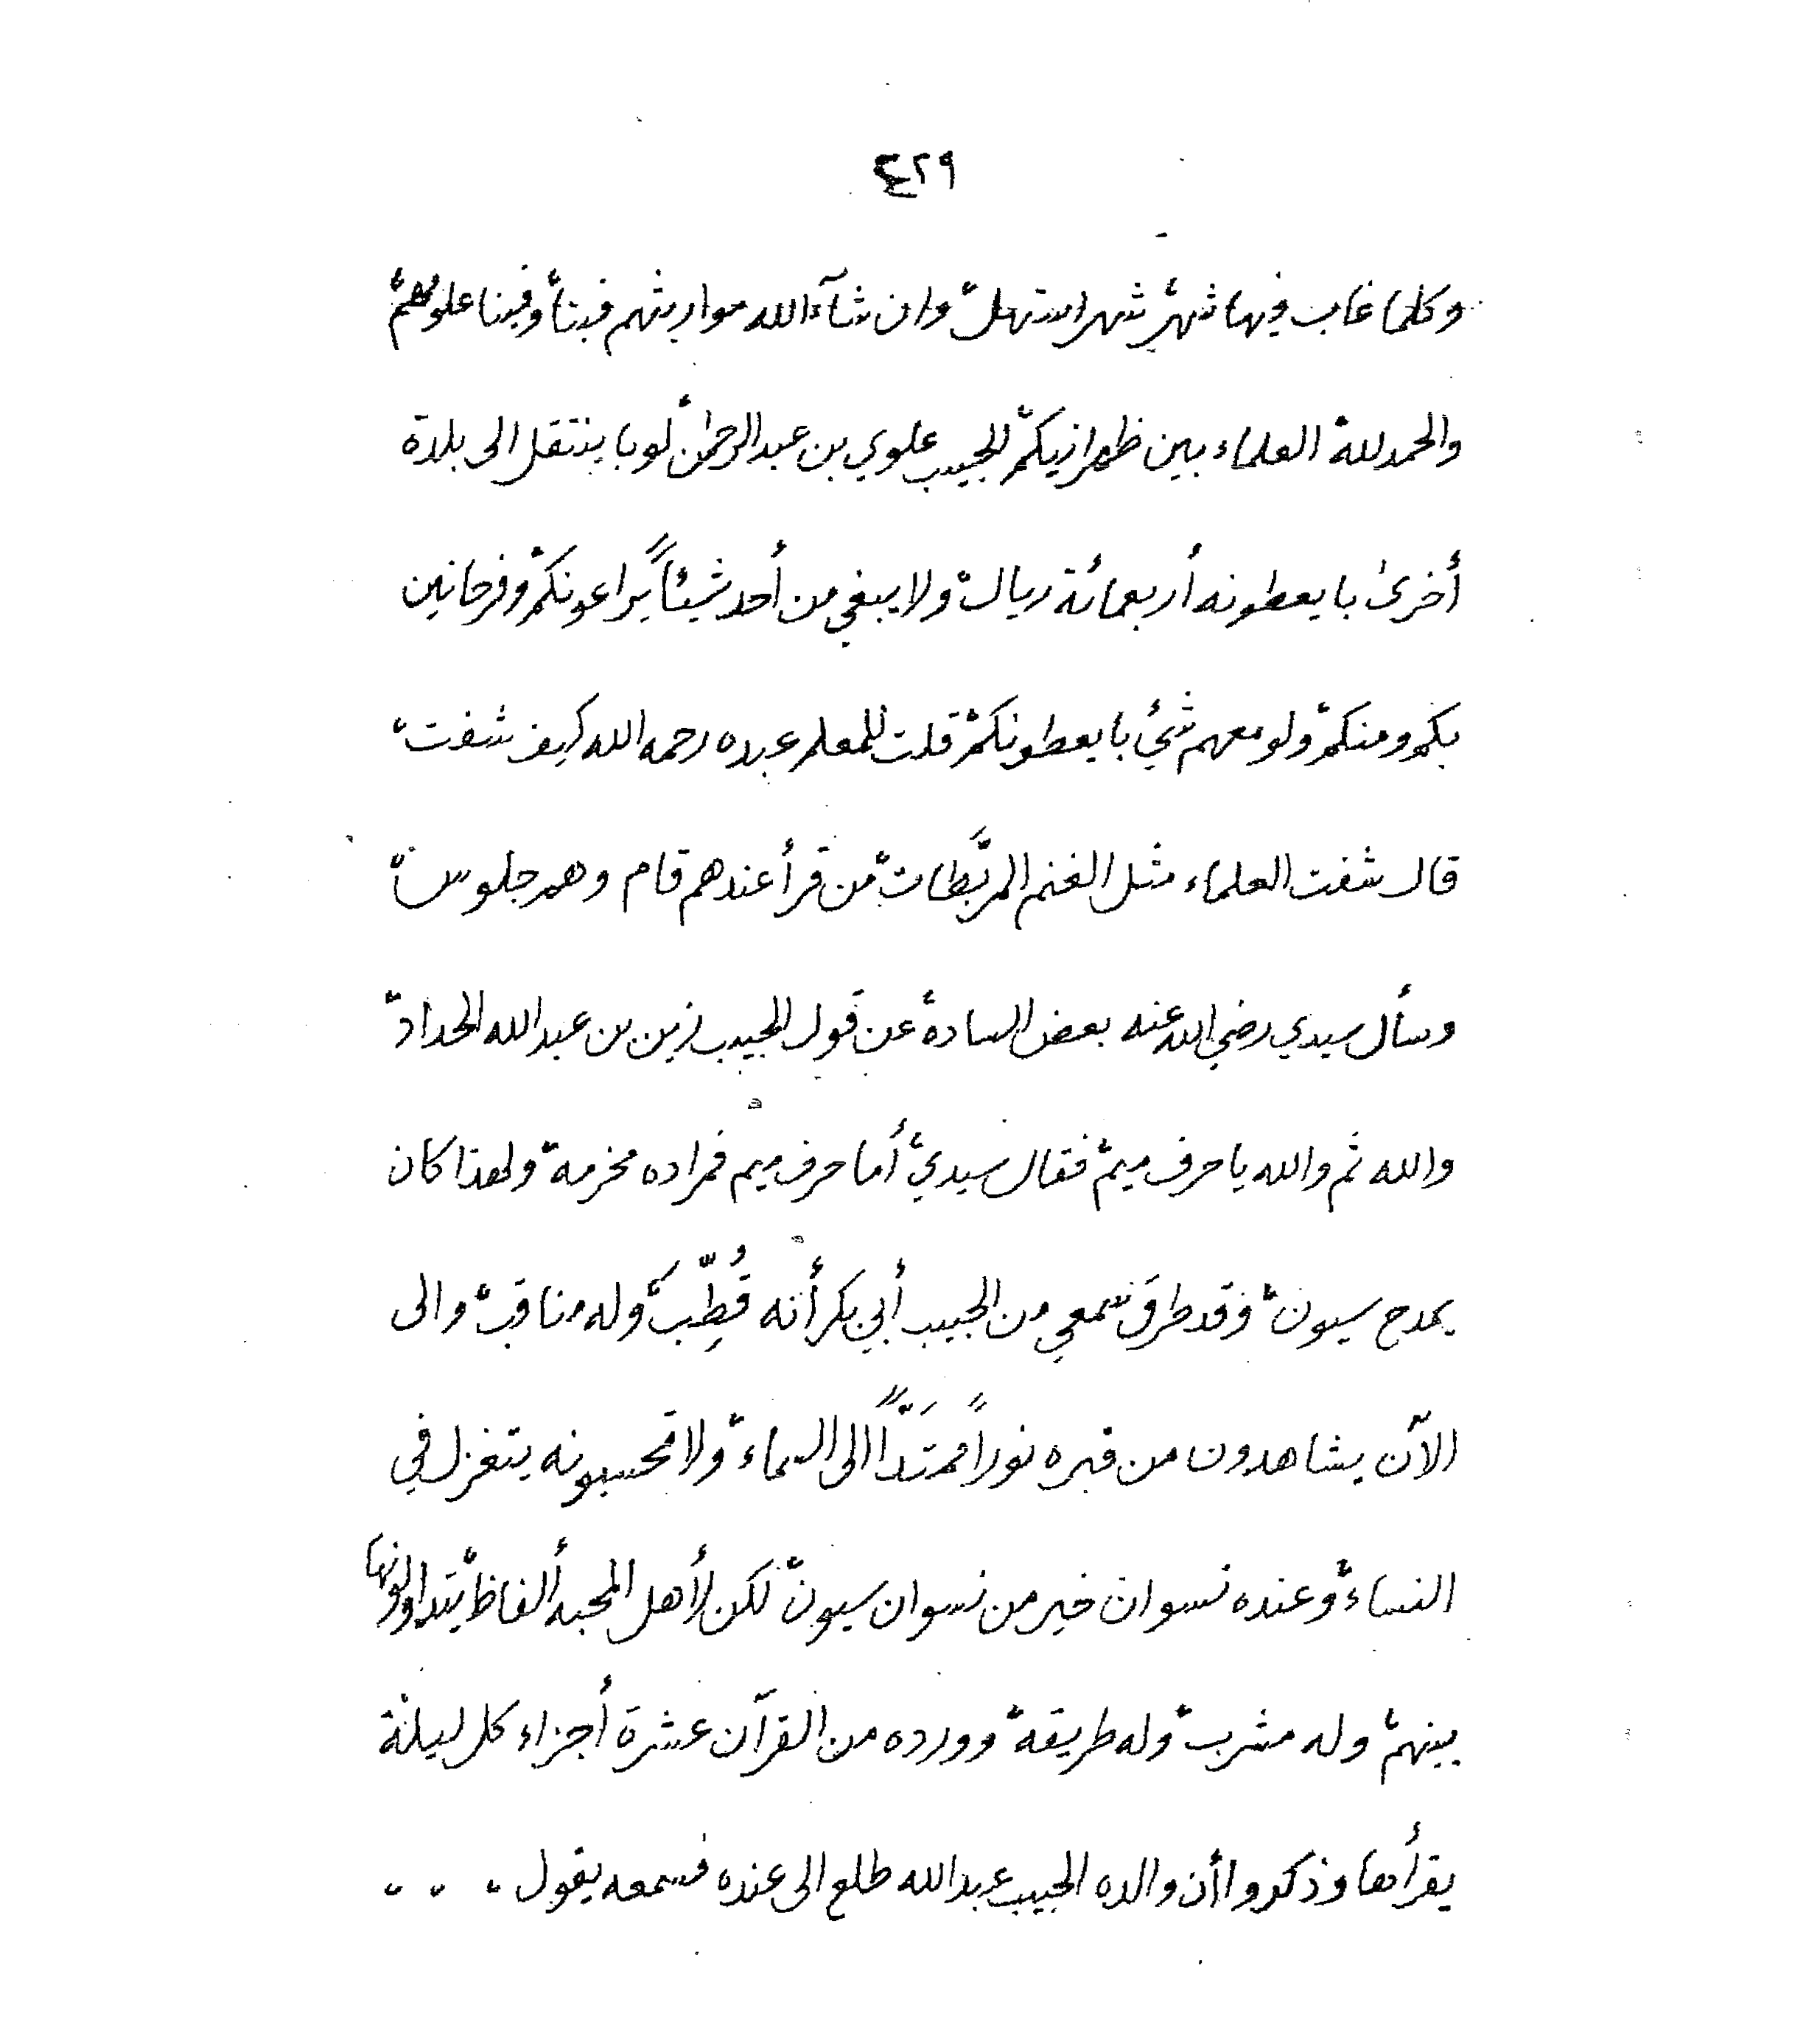 ٤٢٩
وكلما غاب فيها شهر شهر استهل، وان شآء الله مواريثهم فينا، وفينا علومهم،
والحمد لله العلماء بين ظهرانيكم، الحبيب علوي بن عبدالرحمن، لو با ينتقل الى بلدة
أخرى با يعطونه أربعمائة ريال، ولا يبغي من أحد شيئاً، يراعونكم، وفرحانين
بكم ومنكم، ولو معهم شيء با يعطونكم، قلت للمعلم عبده رحمه الله كيف شفت،
قال شفت العلماء مثل الغنم المربَّطات، من قرأ عندهم قام وهم جلوس،
وسأل سيدي رضي الله عنه بعض السادة، عن قول الحبيب زين بن عبدالله الحداد،
والله ثم والله يا حرف ميم، فقال سيدي، أما حرف ميم فمراده مخرمة، ولهذا كان
يمدح سيون، وقد طرق سمعي من الحبيب أبي بكر أنه قُطِّبَ، وله مناقب، والى
الآن يشاهدون من قبره نوراً ممتَدّاً الى السماء، ولا تحسبونه يتغزل في
النساء، وعنده نسوان خير من نسوان سيون، لكن لأهل المحبه ألفاظ، يتداولونها
بينهم، وله مشرب، وله طريقة، وورده من القرآن عشرة أجزاء كل ليلة
يقرأها وذكروا أن والده الحبيب عبدالله طلع الى عنده فسمعه يقول . . .